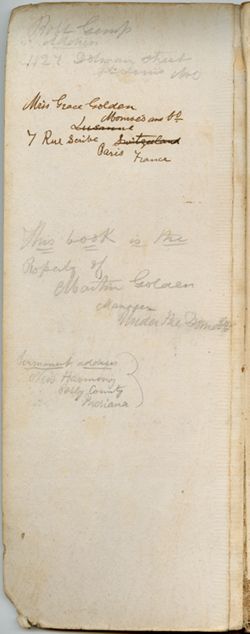 Rolf Camp
1127 Dolman street
St Louis Mo
Miss Grace Golden
Munroe and Co
Lucerne
7 Rue Scribe Switzerland
Paris
France
This book is the
Property of
Martin Golden
Manager
Under the Dome Co
Permanent address
New Harmony
Posey County
Indiana